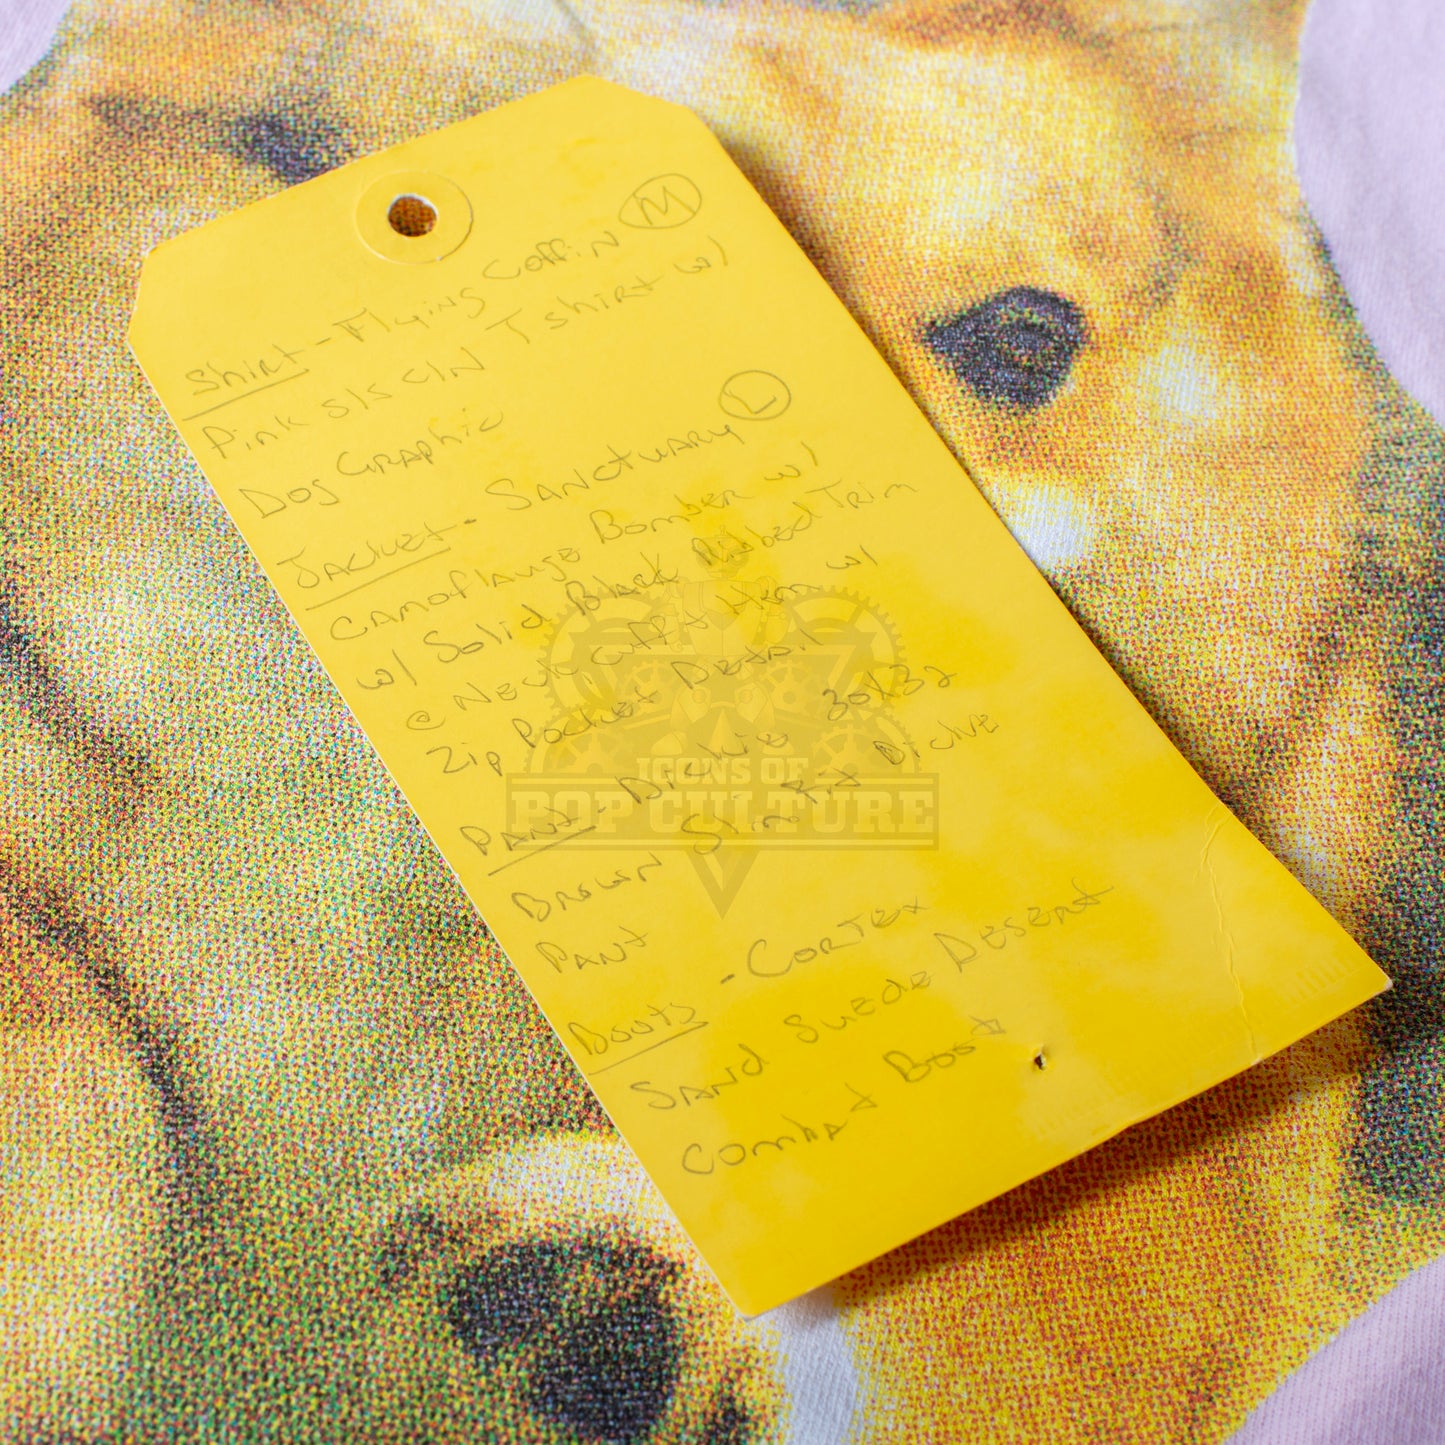 Shirt - Flying Coffin M
Pink s/s c/n Tshirt w/
Dog Graphic
Jacket - Sanctuary L
Camoflauge Bomber w/
w/ Solid Black Ribbed Trim
@ Neck cuffs Arm w/
Zip Pocket Detail
Pant - Dickie 30x32
Brown Slim
Pant
Boots - Cortex
Sand Suede Desert
Combat Boot
ICONS OF
POP CULTURE